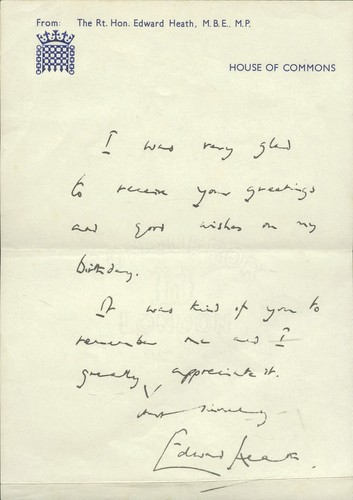 From: The Rt. Hon. Edward Heath, M.B.E., M.P.
HOUSE OF COMMONS
I was very glad
to receive your greetings
and good wishes on my
birthday.
It was kind of you to
remember me and I
greatly appreciate it.
sincerely
Edward Heath